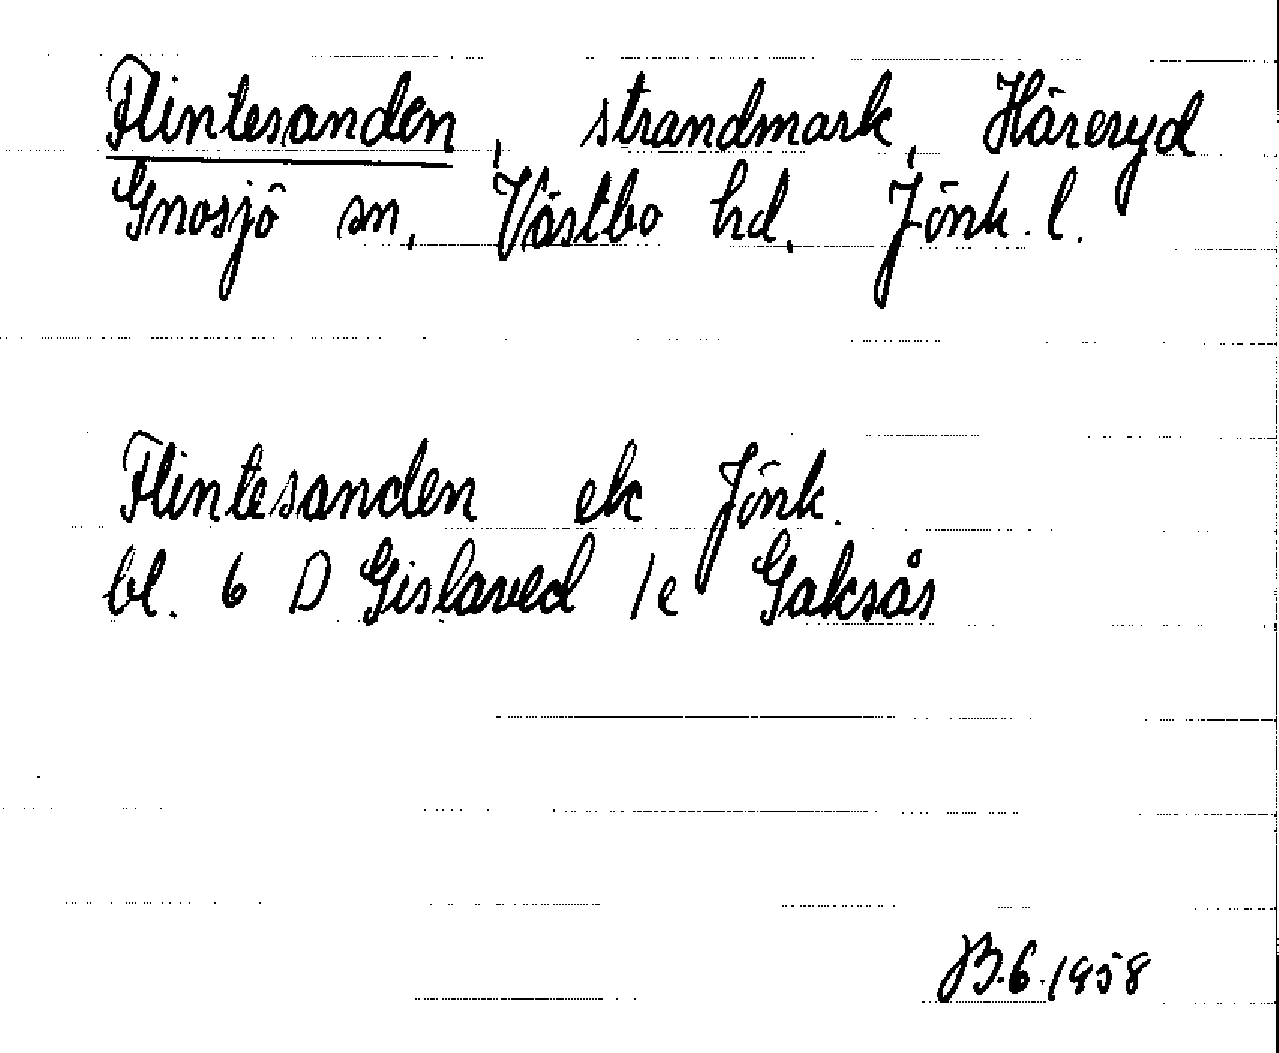 Flintesanden, strandmark, Häreryd
Gnosjö sn, Västbo hd, Jönk. l.
Flintesanden ek Jönk.
bl. 6 D Gislaved 1e Gaksås
JB.6.1958